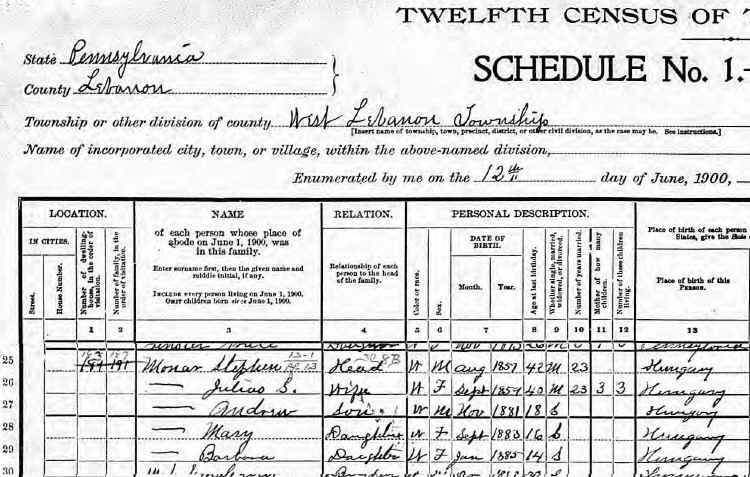 TWELFTH CENSUS OF
State Pennsylvania
County Lebanon
SCHEDULE No. 1.-
Township or other division of county West Lebanon Township
[Insert name of township, town, precinct, district, or other civil division, as the case may be. See instructions.]
Name of incorporated city, town, or village, within the above-named division,
Enumerated by me on the 12th day of June, 1900,
LOCATION.
IN CITIES.
Street.
House Number.
Number of dwelling-house, in the order of visitation.
Number of family, in the order of visitation.
NAME
of each person whose place of
abode on June 1, 1900, was
in this family.
Enter surname first, then the given name and
middle initial, if any.
INCLUDE every person living on June 1, 1900.
OMIT children born since June 1, 1900.
RELATION.
Relationship of each
person to the head
of the family.
PERSONAL DESCRIPTION.
Color or race.
Sex.
DATE OF
BIRTH.
Month.
Year.
Age at last birthday.
Whether single, married, widowed, or divorced.
Number of years married.
Mother of how many children.
Number of these children living.
Place of birth of each person
States, give the State
Place of birth of this
PERSON.
1 2 3 4 5 6 7 8 9 10 11 12 13
25 191 191 Monar Stephen Head W M Aug 1857 42 M 23 Hungary
26 — Julias S. Wife W F Sept 1859 40 M 23 3 3 Hungary
27 — Andrew Son W M Nov 1881 18 S Hungary
28 — Mary Daughter W F Sept 1883 16 S Hungary
29 — Barbara Daughter W F Jan 1885 14 S Hungary
30